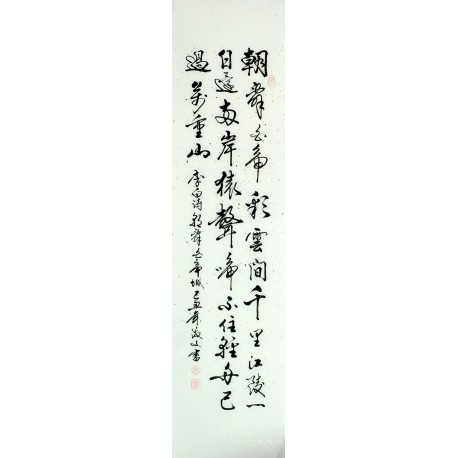 朝辞白帝彩雲間千里江陵一
日還两岸猿聲啼不住輕舟已
過萬重山
李白诗朝辞白帝城己丑書